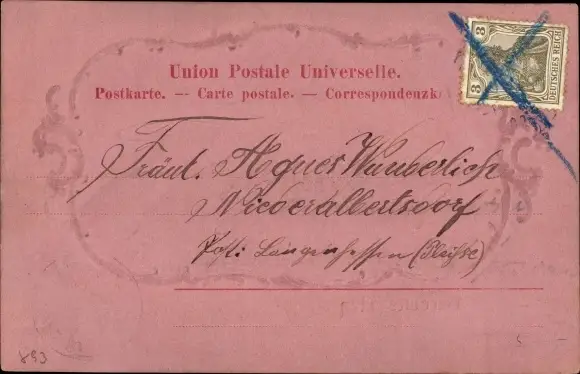 Union Postale Universelle.
Postkarte. — Carte postale. — Correspondenzk
3 DEUTSCHES REICH 3
Fräul. Agnes Wunderlich
Niederalbertsdorf
Post: Langenhessen (Pleiße)
893